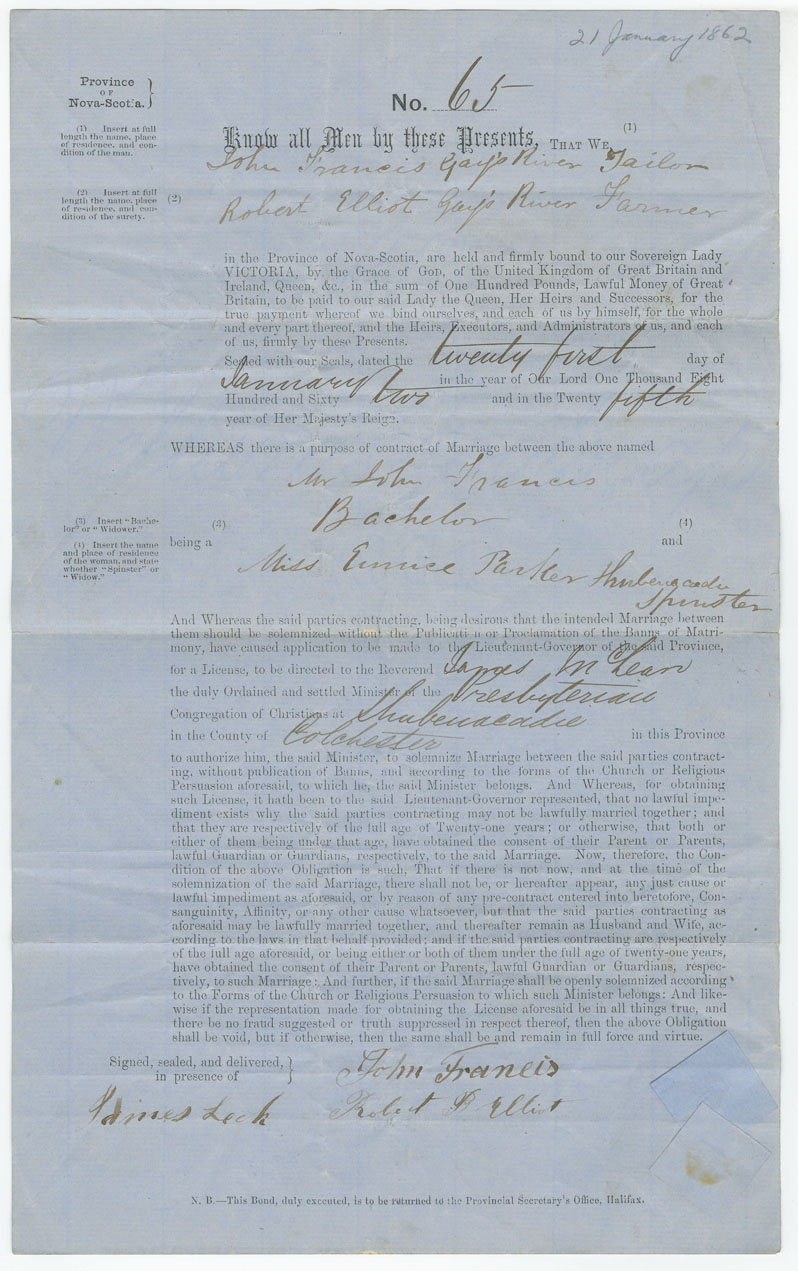 21 January 1862
Province
OF
Nova-Scotia.
No. 65
(1) Insert at full
length the name, place
of residence, and con-
dition of the man.
Know all Men by these Presents, THAT WE, (1)
John Francis Gay's River Tailor
(2) Insert at full
length the name, place
of residence, and con-
dition of the surety.
(2)
Robert Elliot Gay's River Farmer
in the Province of Nova-Scotia, are held and firmly bound to our Sovereign Lady
VICTORIA, by the Grace of GOD, of the United Kingdom of Great Britain and
Ireland, Queen, &c., in the sum of One Hundred Pounds, Lawful Money of Great
Britain, to be paid to our said Lady the Queen, Her Heirs and Successors, for the
true payment whereof we bind ourselves, and each of us by himself, for the whole
and every part thereof, and the Heirs, Executors, and Administrators of us, and each
of us, firmly by these Presents.
Sealed with our Seals, dated the twenty first day of
January in the year of Our Lord One Thousand Eight
Hundred and Sixty two and in the Twenty fifth
year of Her Majesty's Reign.
WHEREAS there is a purpose of contract of Marriage between the above named
Mr John Francis
(3) Insert "Bache-
lor" or "Widower."
(3) Bachelor (4)
(4) Insert the name
and place of residence
of the woman, and state
whether "Spinster" or
"Widow."
being a and
Miss Eunice Parker Shubenacadie
Spinster
And Whereas the said parties contracting, being desirous that the intended Marriage between
them should be solemnized without the Publicati n or Proclamation of the Banns of Matri-
mony, have caused application to be made to the Lieutenant-Governor of the said Province,
for a License, to be directed to the Reverend James McLean
the duly Ordained and settled Minister of the Presbyterian
Congregation of Christians at Shubenacadie
in the County of Colchester in this Province
to authorize him, the said Minister, to solemnize Marriage between the said parties contract-
ing, without publication of Banns, and according to the forms of the Church or Religious
Persuasion aforesaid, to which he, the said Minister belongs. And Whereas, for obtaining
such License, it hath been to the said Lieutenant-Governor represented, that no lawful impe-
diment exists why the said parties contracting may not be lawfully married together; and
that they are respectively of the full age of Twenty-one years; or otherwise, that both or
either of them being under that age, have obtained the consent of their Parent or Parents,
lawful Guardian or Guardians, respectively, to the said Marriage. Now, therefore, the Con-
dition of the above Obligation is such, That if there is not now, and at the time of the
solemnization of the said Marriage, there shall not be, or hereafter appear, any just cause or
lawful impediment as aforesaid, or by reason of any pre-contract entered into heretofore, Con-
sanguinity, Affinity, or any other cause whatsoever, but that the said parties contracting as
aforesaid may be lawfully married together, and thereafter remain as Husband and Wife, ac-
cording to the laws in that behalf provided; and if the said parties contracting are respectively
of the full age aforesaid, or being either or both of them under the full age of twenty-one years,
have obtained the consent of their Parent or Parents, lawful Guardian or Guardians, respec-
tively, to such Marriage: And further, if the said Marriage shall be openly solemnized according
to the Forms of the Church or Religious Persuasion to which such Minister belongs: And like-
wise if the representation made for obtaining the License aforesaid be in all things true, and
there be no fraud suggested or truth suppressed in respect thereof, then the above Obligation
shall be void, but if otherwise, then the same shall be and remain in full force and virtue.
Signed, sealed, and delivered,
in presence of
John Francis
James Robert Elliot
N. B.—This Bond, duly executed, is to be returned to the Provincial Secretary's Office, Halifax.